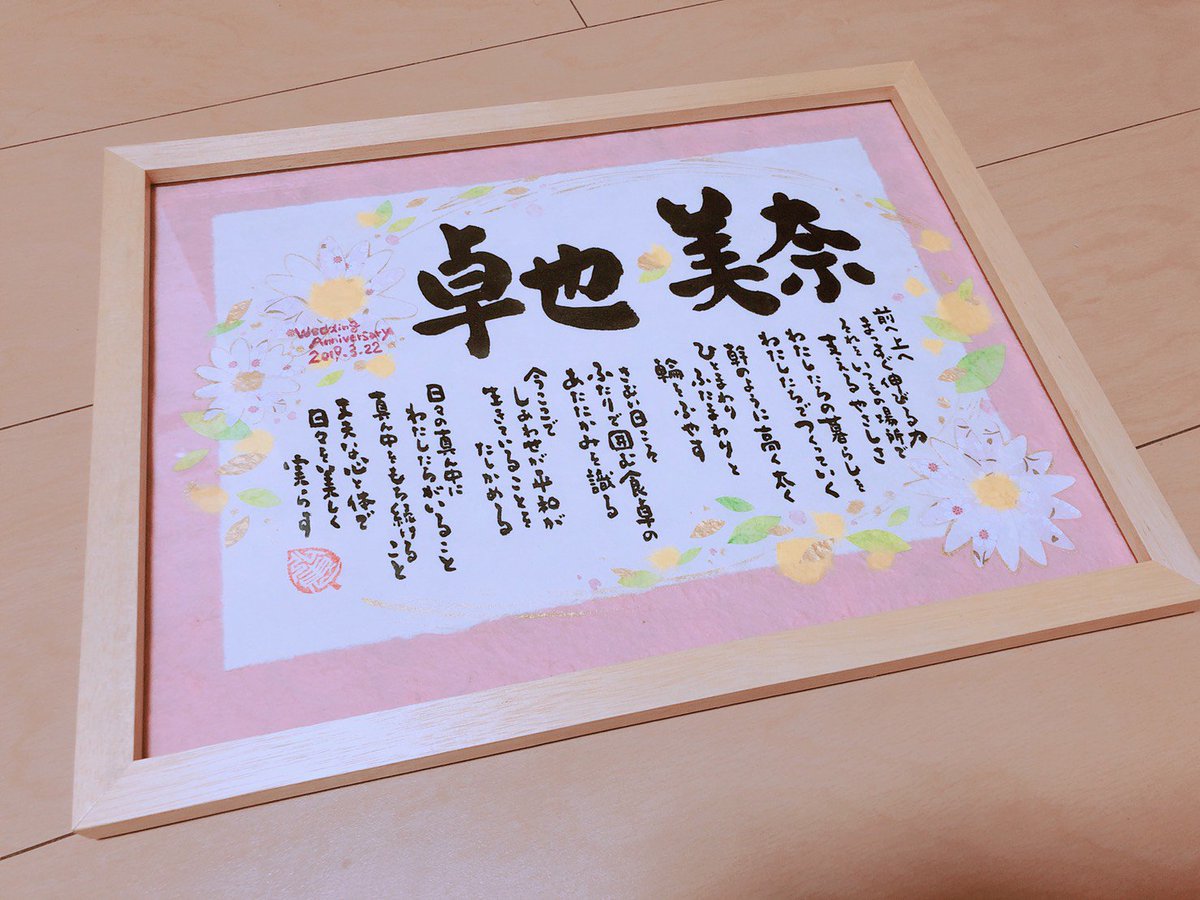 美奈
卓也
前へ上へ
まっすぐ伸びる力
それをいつもの場所で
支えるやさしさ
わたしたちの暮らしを
わたしたちでつくっていく
幹のように高く太く
ひとまわり
ふたまわりと
輪をふやす
さむい日こそ
ふたりで囲む食卓の
あたたかみを識る
今ここで
しあわせが平和が
生きていることを
たしかめる
日々の真ん中に
わたしたちがいること
真ん中をもち続けること
丈夫な心と体で
日々を美しく
実らす
Wedding
Anniversary
2019.3.22